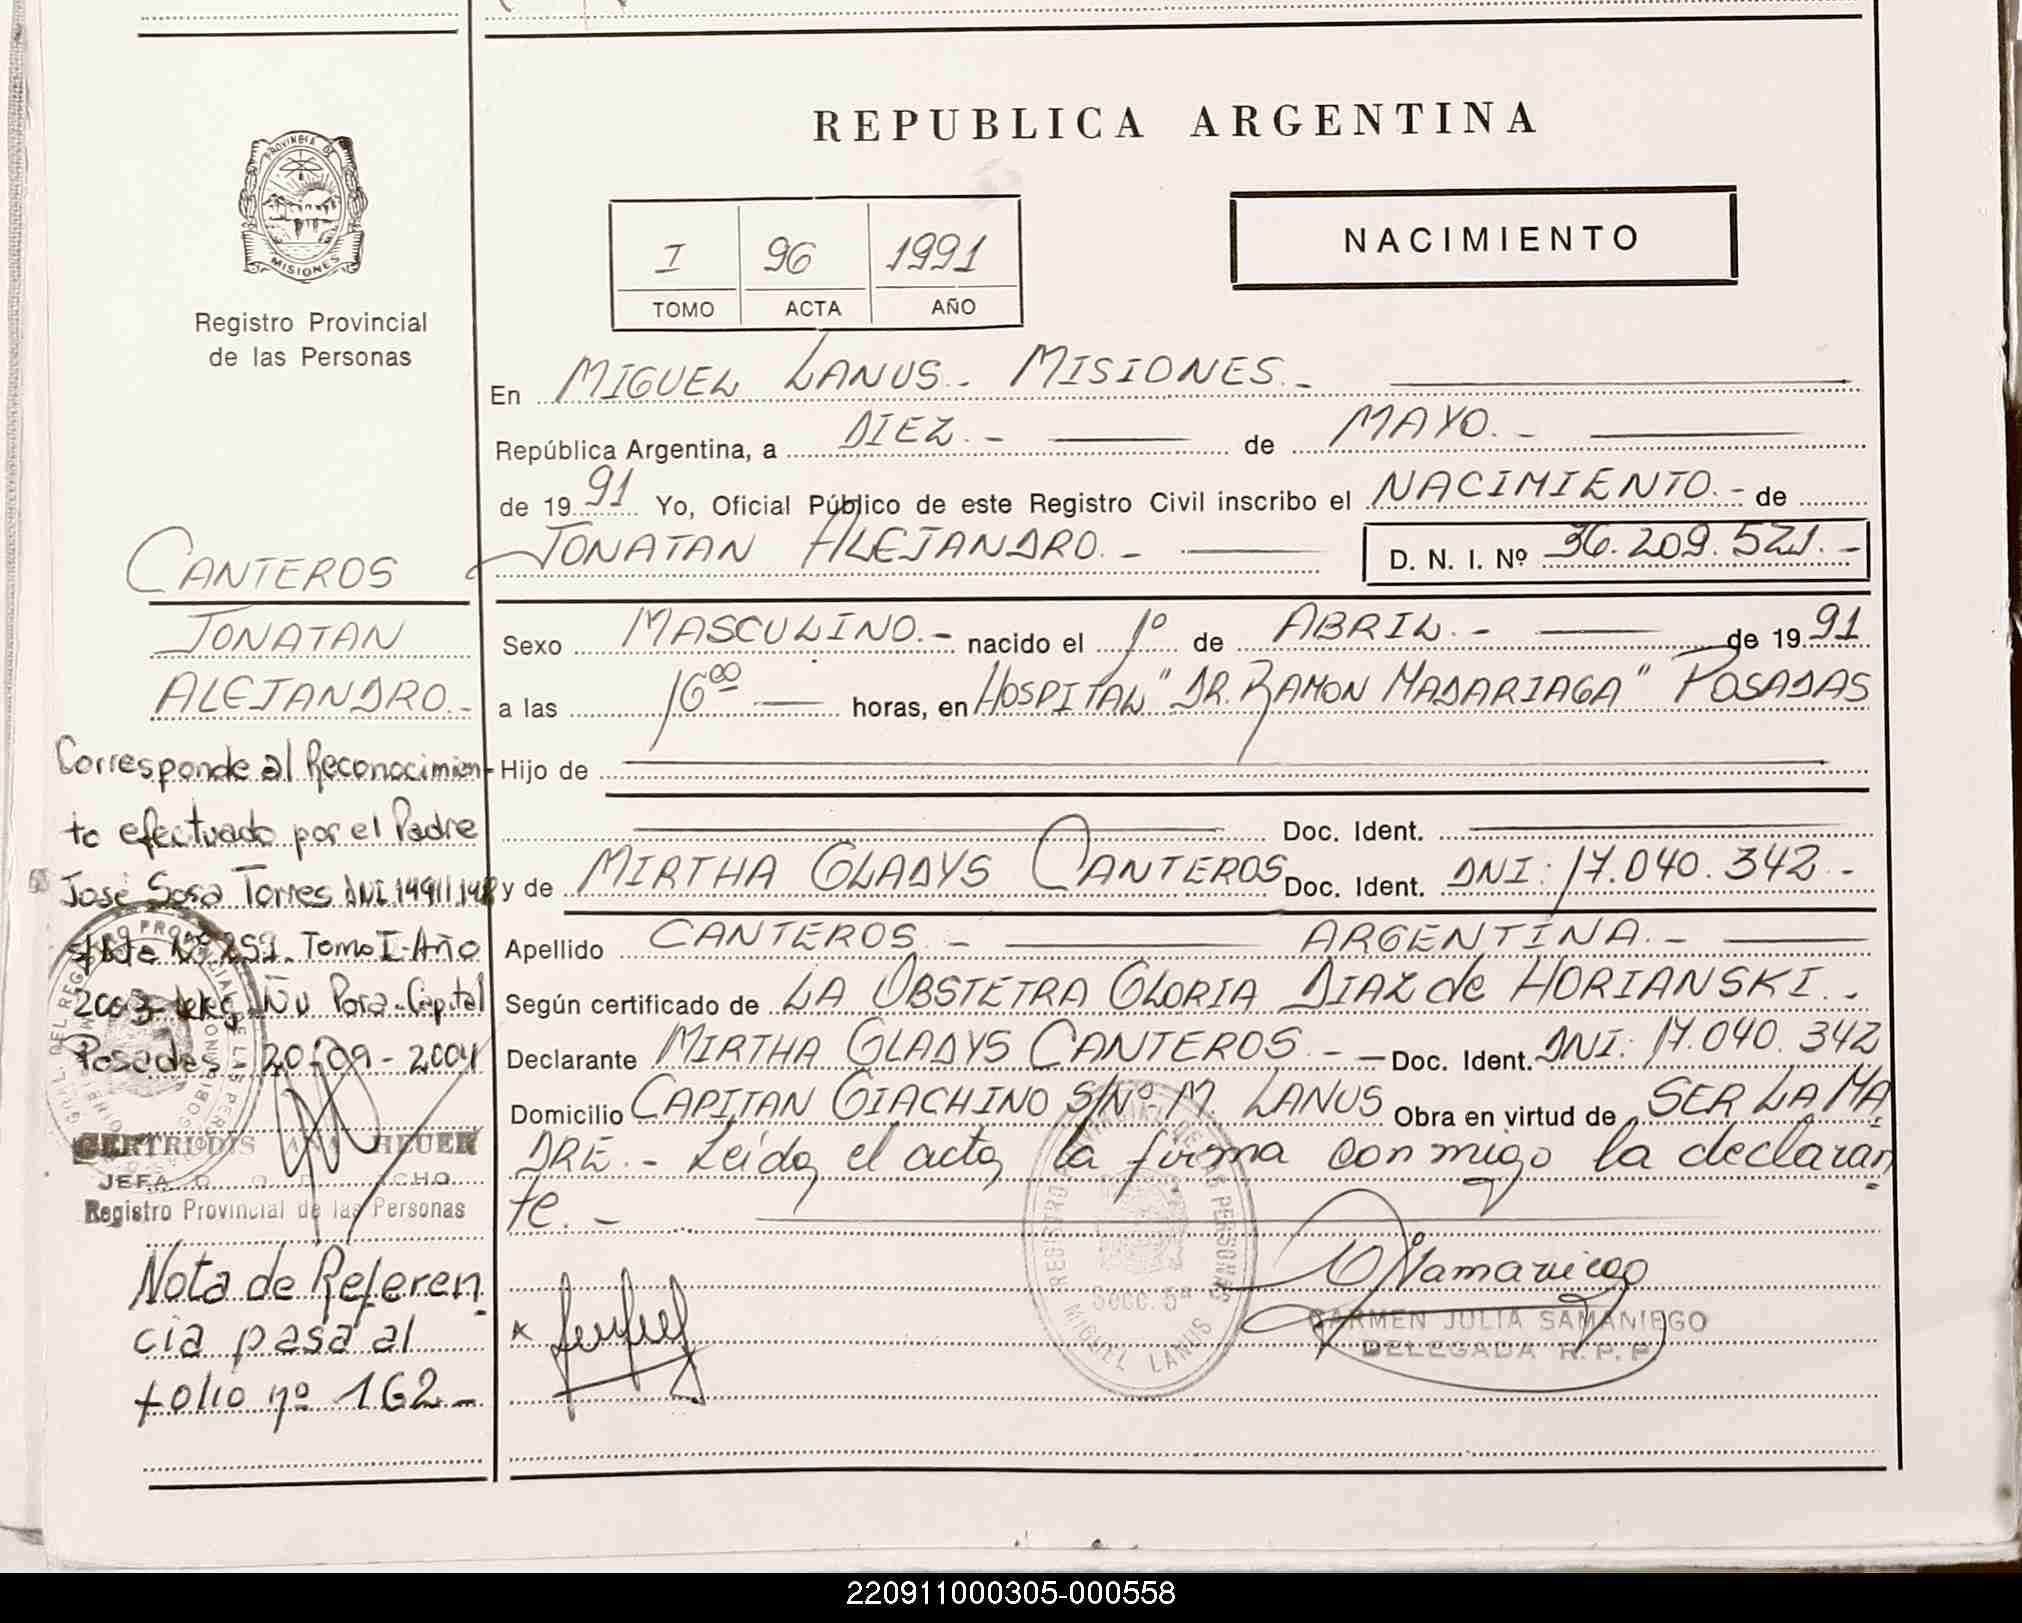 REPUBLICA ARGENTINA
PROVINCIA DE
MISIONES
Registro Provincial
de las Personas
I 96 1991
TOMO ACTA AÑO
NACIMIENTO
En MIGUEL LANUS.- MISIONES.-
República Argentina, a DIEZ.- de MAYO.-
de 1991 Yo, Oficial Público de este Registro Civil inscribo el NACIMIENTO.- de
JONATAN ALEJANDRO.- D. N. I. Nº 36.209.521.-
Sexo MASCULINO.- nacido el 1º de ABRIL.- de 1991
a las 16 00 horas, en HOSPITAL "DR. RAMON MADARIAGA" POSADAS
Hijo de
Doc. Ident.
y de MIRTHA GLADYS CANTEROS Doc. Ident. DNI: 17.040.342.-
Apellido CANTEROS.- ARGENTINA.-
Según certificado de LA OBSTETRA GLORIA DIAZ de HORIANSKI.-
Declarante MIRTHA GLADYS CANTEROS.- Doc. Ident. DNI: 17.040.342
Domicilio CAPITAN GIACHINO S/Nº-M. LANUS Obra en virtud de SER LA MA
DRE.- Leída el acta, la firma conmigo la declaran
te.-
CANTEROS
JONATAN
ALEJANDRO.-
Corresponde al Reconocimien-
to efectuado por el Padre
José Sosa Torres DNI
Nº 251. Tomo I-Año
2003- Ñu Pora-Capital
Posadas - 20-09-2004
GERTRUDIS ANA HEUER
JEFA
Registro Provincial de las Personas
Nota de Referen
cia pasa al
folio nº 162-
REGISTRO PROVINCIAL DE LAS PERSONAS
Secc. 5ª
MIGUEL LANUS
CARMEN JULIA SAMANIEGO
DELEGADA R. P. P.
220911000305-000558